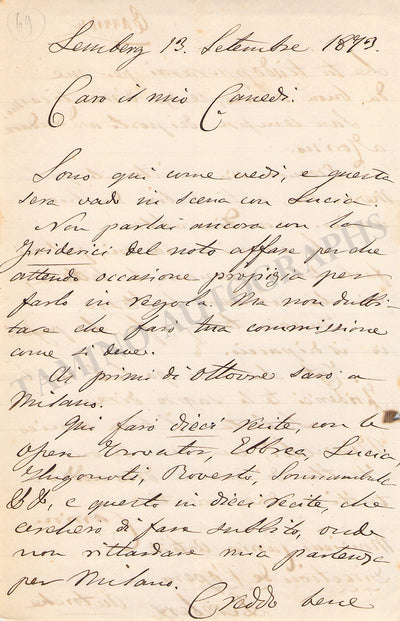 69
Lemberg 13. Setembre 1873.
Caro il mio Canedi.
Sono qui come vedi, e questa
sera vado in scena con Lucia.
Non parlai ancora con la
Friderici del noto affare perche
attendo occasione propizia per
farlo in regola. Ma non dubbi-
tare che farò tua commissione
come si deve.
Ai primi di Ottovre sarò a
Milano.
Qui farò dieci recite, con le
Opere Trovator, Ebbrea, Lucia,
Hugonoti, Roverto, Sonnambula
&&, e questo in dieci recite, che
cercherò di fare subbito, onde
non rittardare mia partenza
per Milano.
Creddo bene
TAMINO AUTOGRAPHS